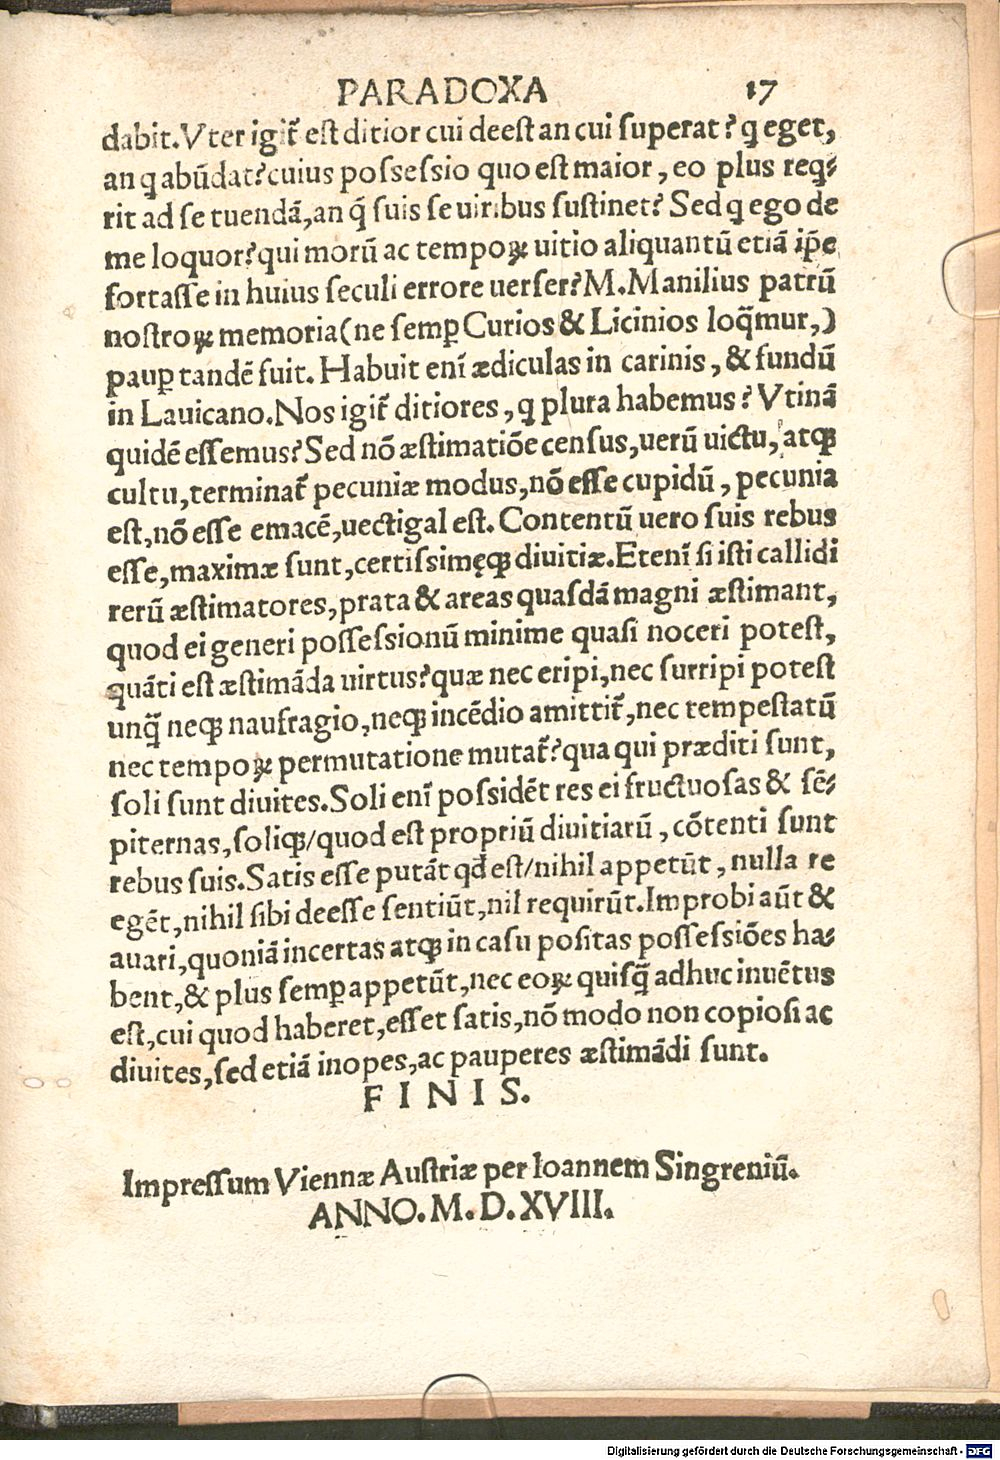 PARADOXA 17
dabit. Vter igit᷑ est ditior cui deest an cui superat? q̨ eget,
an q̨ abũdat? cuius possessio quo est maior, eo plus req̨⸗
rit ad se tuendã, an q̃ suis se uiribus sustinet? Sed q̨ ego de
me loquor? qui morũ ac tempoꝝ uitio aliquantũ etiã ip̃e
fortasse in huius seculi errore uerser? M. Manilius patrũ
nostroꝝ memoria (ne semꝑ Curios & Licinios loq̃mur,)
pauꝑ tandẽ fuit. Habuit enĩ ædiculas in carinis, & fundũ
in Lauicano. Nos igit᷑ ditiores, q̨ plura habemus? Vtinã
quidẽ essemus? Sed nõ æstimatiõe census, uerũ uictu, atqꝫ
cultu, terminat᷑ pecuniæ modus, nõ esse cupidũ, pecunia
est, nõ esse emacẽ, uectigal est. Contentũ uero suis rebus
esse, maximæ sunt, certissimęqꝫ diuitiæ. Etenĩ si isti callidi
rerũ æstimatores, prata & areas quasdã magni æstimant,
quod ei generi possessionũ minime quasi noceri potest,
quãti est æstimãda uirtus? quæ nec eripi, nec surripi potest
unq̃ neqꝫ naufragio, neqꝫ incẽdio amittit᷑, nec tempestatũ
nec tempoꝝ permutatione mutat᷑? qua qui præditi sunt,
soli sunt diuites. Soli enĩ possidẽt res ei fructuosas & sẽ⸗
piternas, soliqꝫ/ quod est propriũ diuitiarũ, cõtenti sunt
rebus suis. Satis esse putãt qđ est/ nihil appetũt, nulla re
egẽt, nihil sibi deesse sentiũt, nil requirũt. Improbi aũt &
auari, quoniã incertas atqꝫ in casu positas possessiões ha⸗
bent, & plus semꝑ appetũt, nec eoꝝ quisq̃ adhuc inuẽtus
est, cui quod haberet, esset satis, nõ modo non copiosi ac
diuites, sed etiã inopes, ac pauperes æstimãdi sunt.
FINIS.
Impressum Viennæ Austriæ per Ioannem Singreniũ.
ANNO. M. D. XVIII.
Digitalisierung gefördert durch die Deutsche Forschungsgemeinschaft - DFG